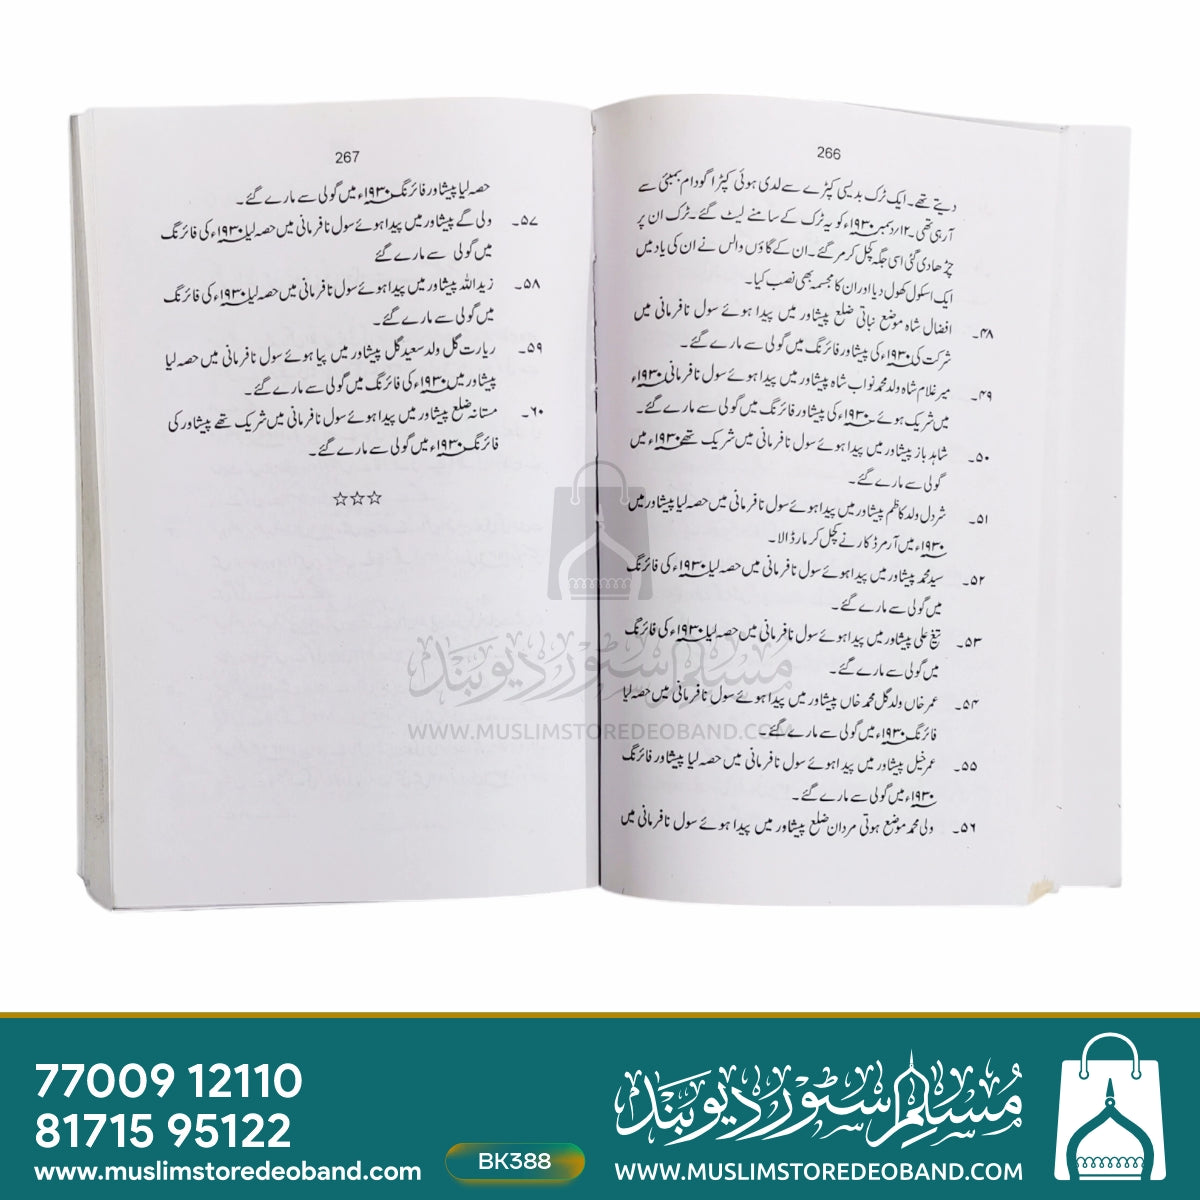 266
دیتے تھے۔ ایک ٹرک بدیسی کپڑے سے لدی ہوئی کپڑا گودام بمبئی سے
آرہی تھی۔ ۱۲؍دسمبر ۱۹۳۰ء کو یہ ٹرک کے سامنے لیٹ گئے۔ ٹرک ان پر
چڑھادی گئی اسی جگہ کچل کر مر گئے۔ ان کے گاؤں والس نے ان کی یاد میں
ایک اسکول کھول دیا اور ان کا مجسمہ بھی نصب کیا۔
۴۸۔ افضال شاہ موضع نباتی ضلع پیشاور میں پیدا ہوئے سول نافرمانی میں
شرکت کی ۱۹۳۰ء کی پیشاور فائرنگ میں گولی سے مارے گئے۔
۴۹۔ میر غلام شاہ ولد محمد نواب شاہ پیشاور میں پیدا ہوئے سول نافرمانی ۱۹۳۰ء
میں شریک ہوئے ۱۹۳۰ء کی پیشاور فائرنگ میں گولی سے مارے گئے۔
۵۰۔ شاہد باز پیشاور میں پیدا ہوئے سول نافرمانی میں شریک تھے ۱۹۳۰ء میں
گولی سے مارے گئے۔
۵۱۔ شردل ولد کاظم پیشاور میں پیدا ہوئے سول نافرمانی میں حصہ لیا پیشاور میں
۱۹۳۰ء میں آرمرڈ کار نے کچل کر مار ڈالا۔
۵۲۔ سید محمد پیشاور میں پیدا ہوئے سول نافرمانی میں حصہ لیا ۱۹۳۰ء کی فائرنگ
میں گولی سے مارے گئے۔
۵۳۔ تیغ علی پیشاور میں پیدا ہوئے سول نافرمانی میں حصہ لیا ۱۹۳۰ء کی فائرنگ
میں گولی سے مارے گئے۔
۵۴۔ عمر خاں ولد گل محمد خاں پیشاور میں پیدا ہوئے سول نافرمانی میں حصہ لیا
فائرنگ ۱۹۳۰ء میں گولی سے مارے گئے۔
۵۵۔ عمر خیل پیشاور میں پیدا ہوئے سول نافرمانی میں حصہ لیا پیشاور فائرنگ
۱۹۳۰ء میں گولی سے مارے گئے۔
۵۶۔ ولی محمد موضع ہوتی مردان ضلع پیشاور میں پیدا ہوئے سول نافرمانی میں
267
حصہ لیا پیشاور فائرنگ ۱۹۳۰ء میں گولی سے مارے گئے۔
۵۷۔ ولی گے پیشاور میں پیدا ہوئے سول نافرمانی میں حصہ لیا ۱۹۳۰ء کی فائرنگ
میں گولی سے مارے گئے
۵۸۔ زید اللہ پیشاور میں پیدا ہوئے سول نافرمانی میں حصہ لیا ۱۹۳۰ء کی فائرنگ
میں گولی سے مارے گئے۔
۵۹۔ ریارت گل ولد سعید گل پیشاور میں پیا ہوئے سول نافرمانی میں حصہ لیا
پیشاور میں ۱۹۳۰ء کی فائرنگ میں گولی سے مارے گئے۔
۶۰۔ مستانہ ضلع پیشاور میں پیدا ہوئے سول نافرمانی میں شریک تھے پیشاور کی
فائرنگ ۱۹۳۰ء میں گولی سے مارے گئے۔
☆☆☆
مسلم سٹور دیوبند
WWW.MUSLIMSTOREDEOBAND.COM
77009 12110
81715 95122
www.muslimstoredeoband.com
BK388
مسلم سٹور دیوبند
WWW.MUSLIMSTOREDEOBAND.COM